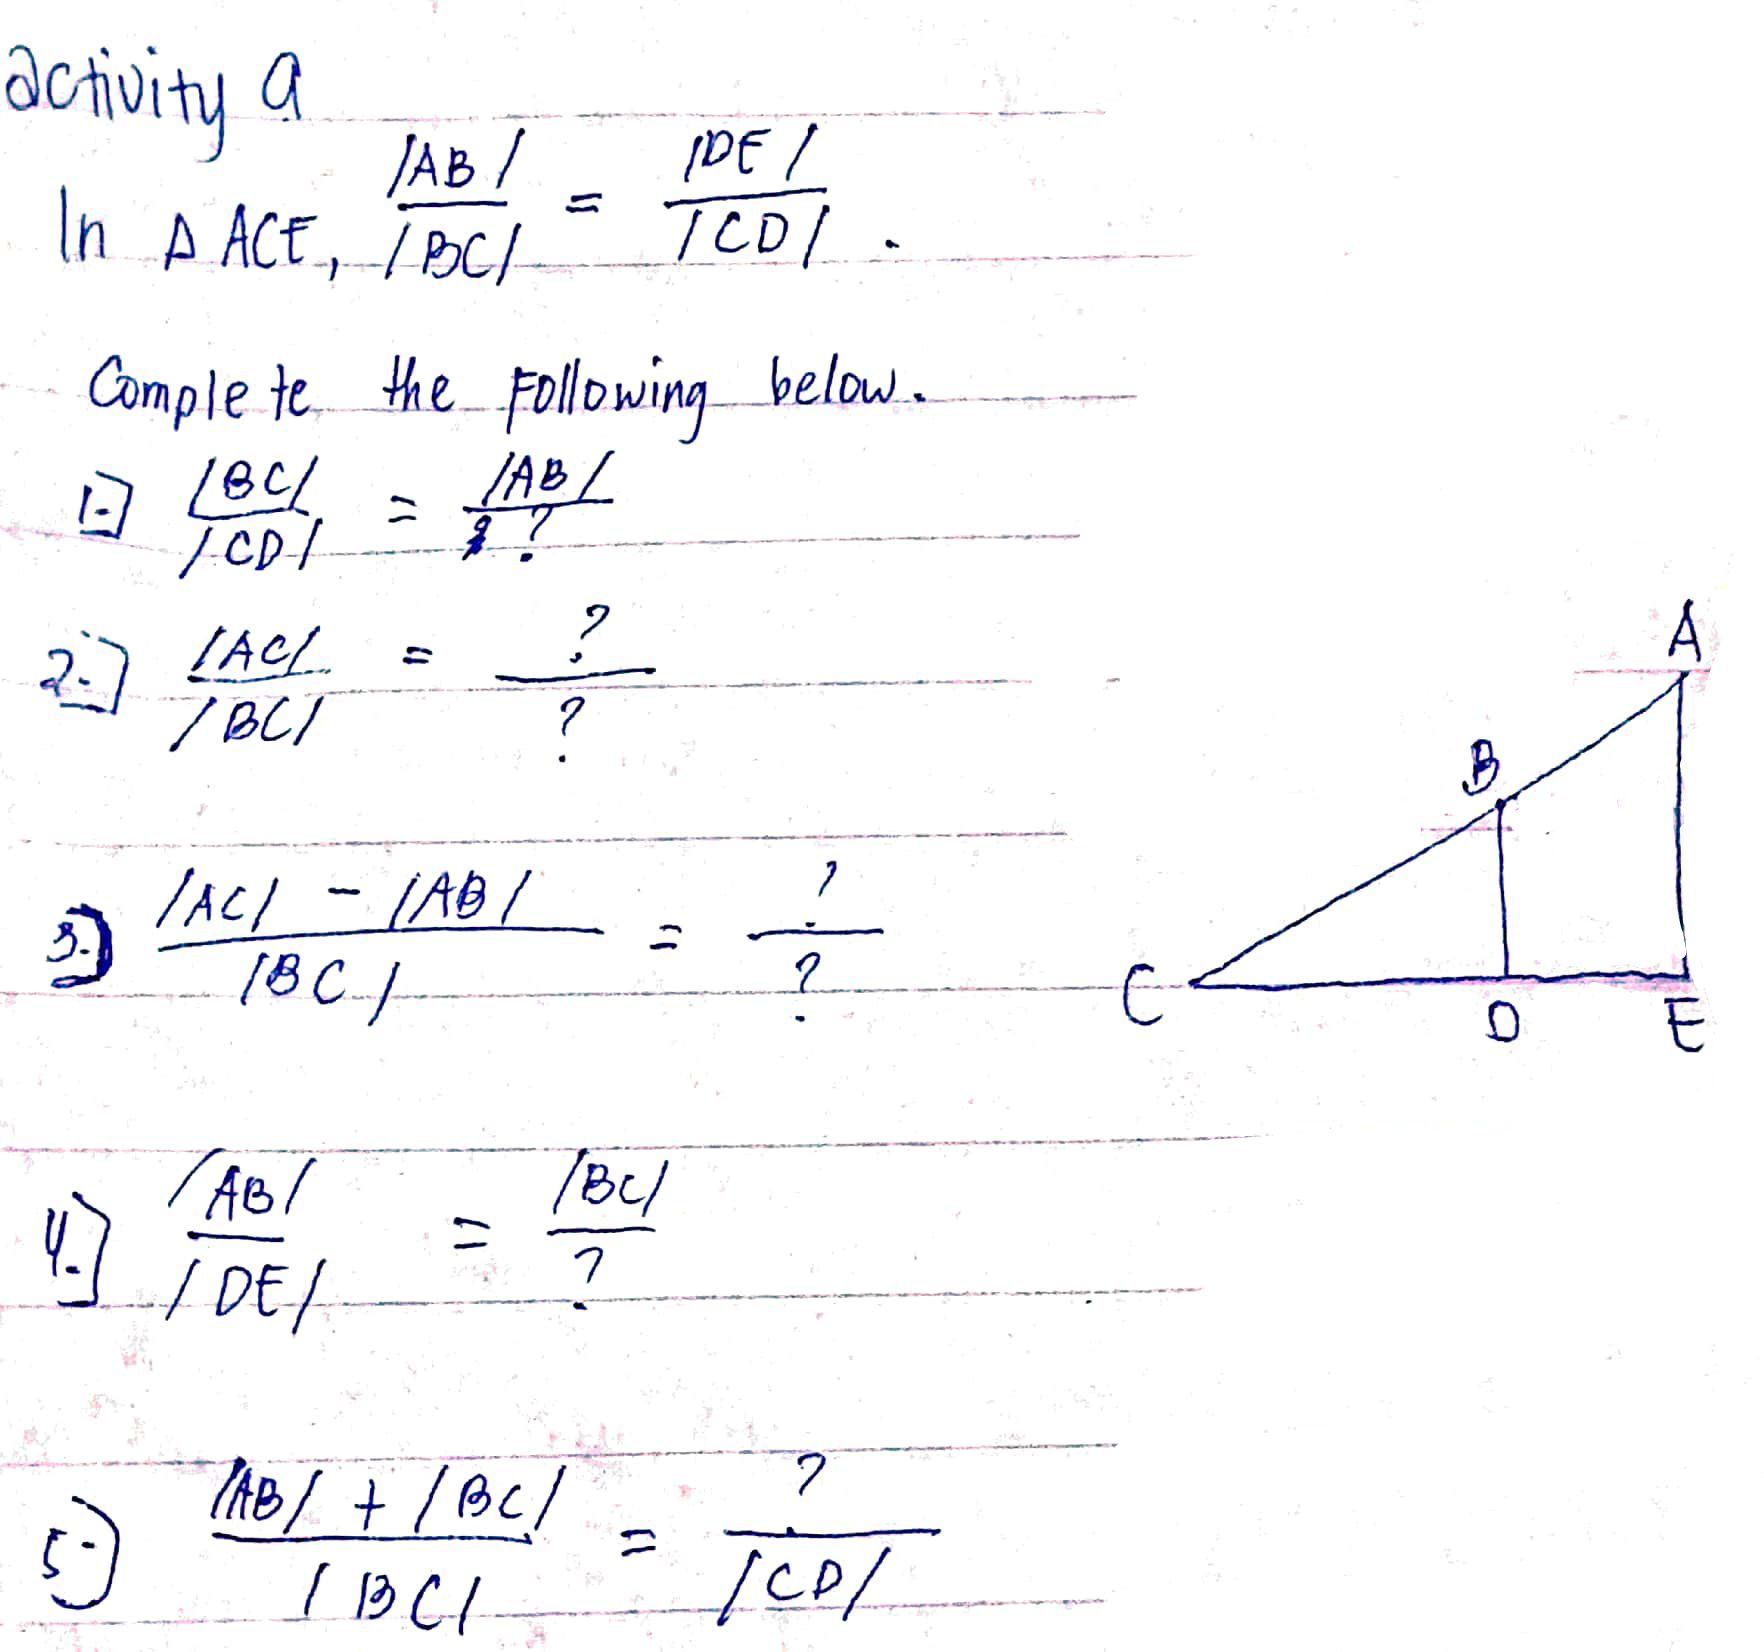 activity a
In Δ ACE, /AB/ / /BC/ = /DE/ / /CD/ .
Complete the Following below.
1.] /BC/ / /CD/ = /AB/ / ?
2.] /AC/ / /BC/ = ? / ?
3.) /AC/ - /AB/ / /BC/ = ? / ?
4.] /AB/ / /DE/ = /BC/ / ?
5.) /AB/ + /BC/ / /BC/ = ? / /CD/
A
B
C
D
E